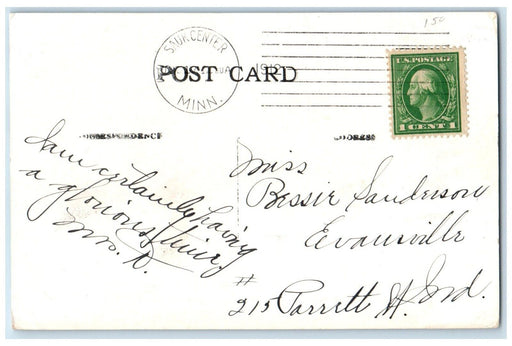 150
SAUK CENTER
MINN.
POST CARD
U.S. POSTAGE
1 CENT 1
CORRESPONDENCE
ADDRESS
I am certainly having
a glorious time.
Mrs. R.
Miss
Bessie Sanderson
Evansville
#
215 Parrett St. Ind.